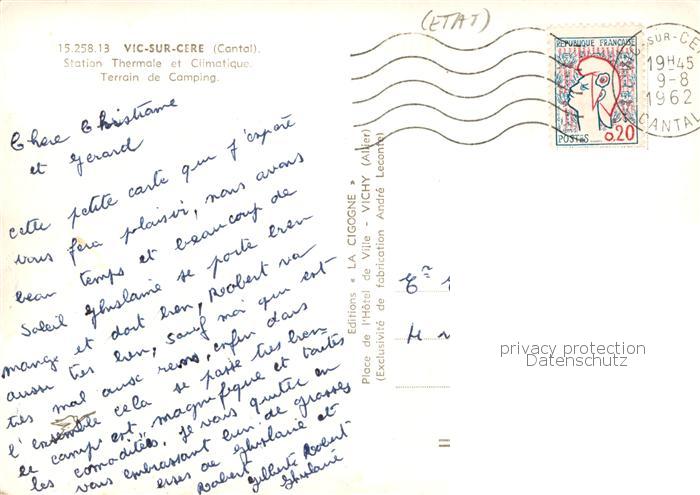 (ETAT)
15.258.13 VIC-SUR-CERE (Cantal).
Station Thermale et Climatique.
Terrain de Camping.
REPUBLIQUE FRANÇAISE
POSTES 0,20
VIC-SUR-CERE
19H45
9-8
1962
CANTAL
Chere Christiane
et Gerard
cette petite carte qui j'espere
vous fera plaisir, nous avons
beau temps et beaucoup de
Soleil Ghislaine se porte bien
mange et dort bien, Robert va
aussi tres bien, sauf moi qui est
tres mal aux reins, enfin dans
l'ensemble cela se passe tres bien
le camps est magnifique et toutes
les comoditées, je vous quitte en
vous embrassant bien de grosses
bises de Ghislaine et
Robert
Gilberte Robert
Ghislaine
Editions « LA CIGOGNE »
Place de l'Hôtel de Ville - VICHY (Allier)
(Exclusivité de fabrication André Leconte)
privacy protection
Datenschutz